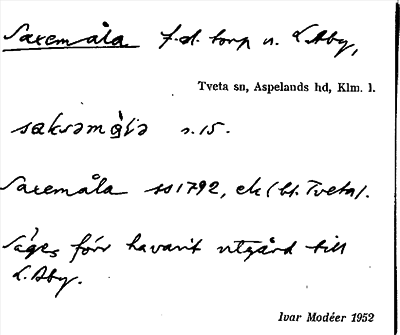 Saxemåla f.d. torp u. L. Åby,
Tveta sn, Aspelands hd, Klm. l.
saksəmå̀la s. 15.
Saxemåla ss 1792, ek (bl. Tveta).
Säges förr havarit utgård till
L. Åby.
Ivar Modéer 1952